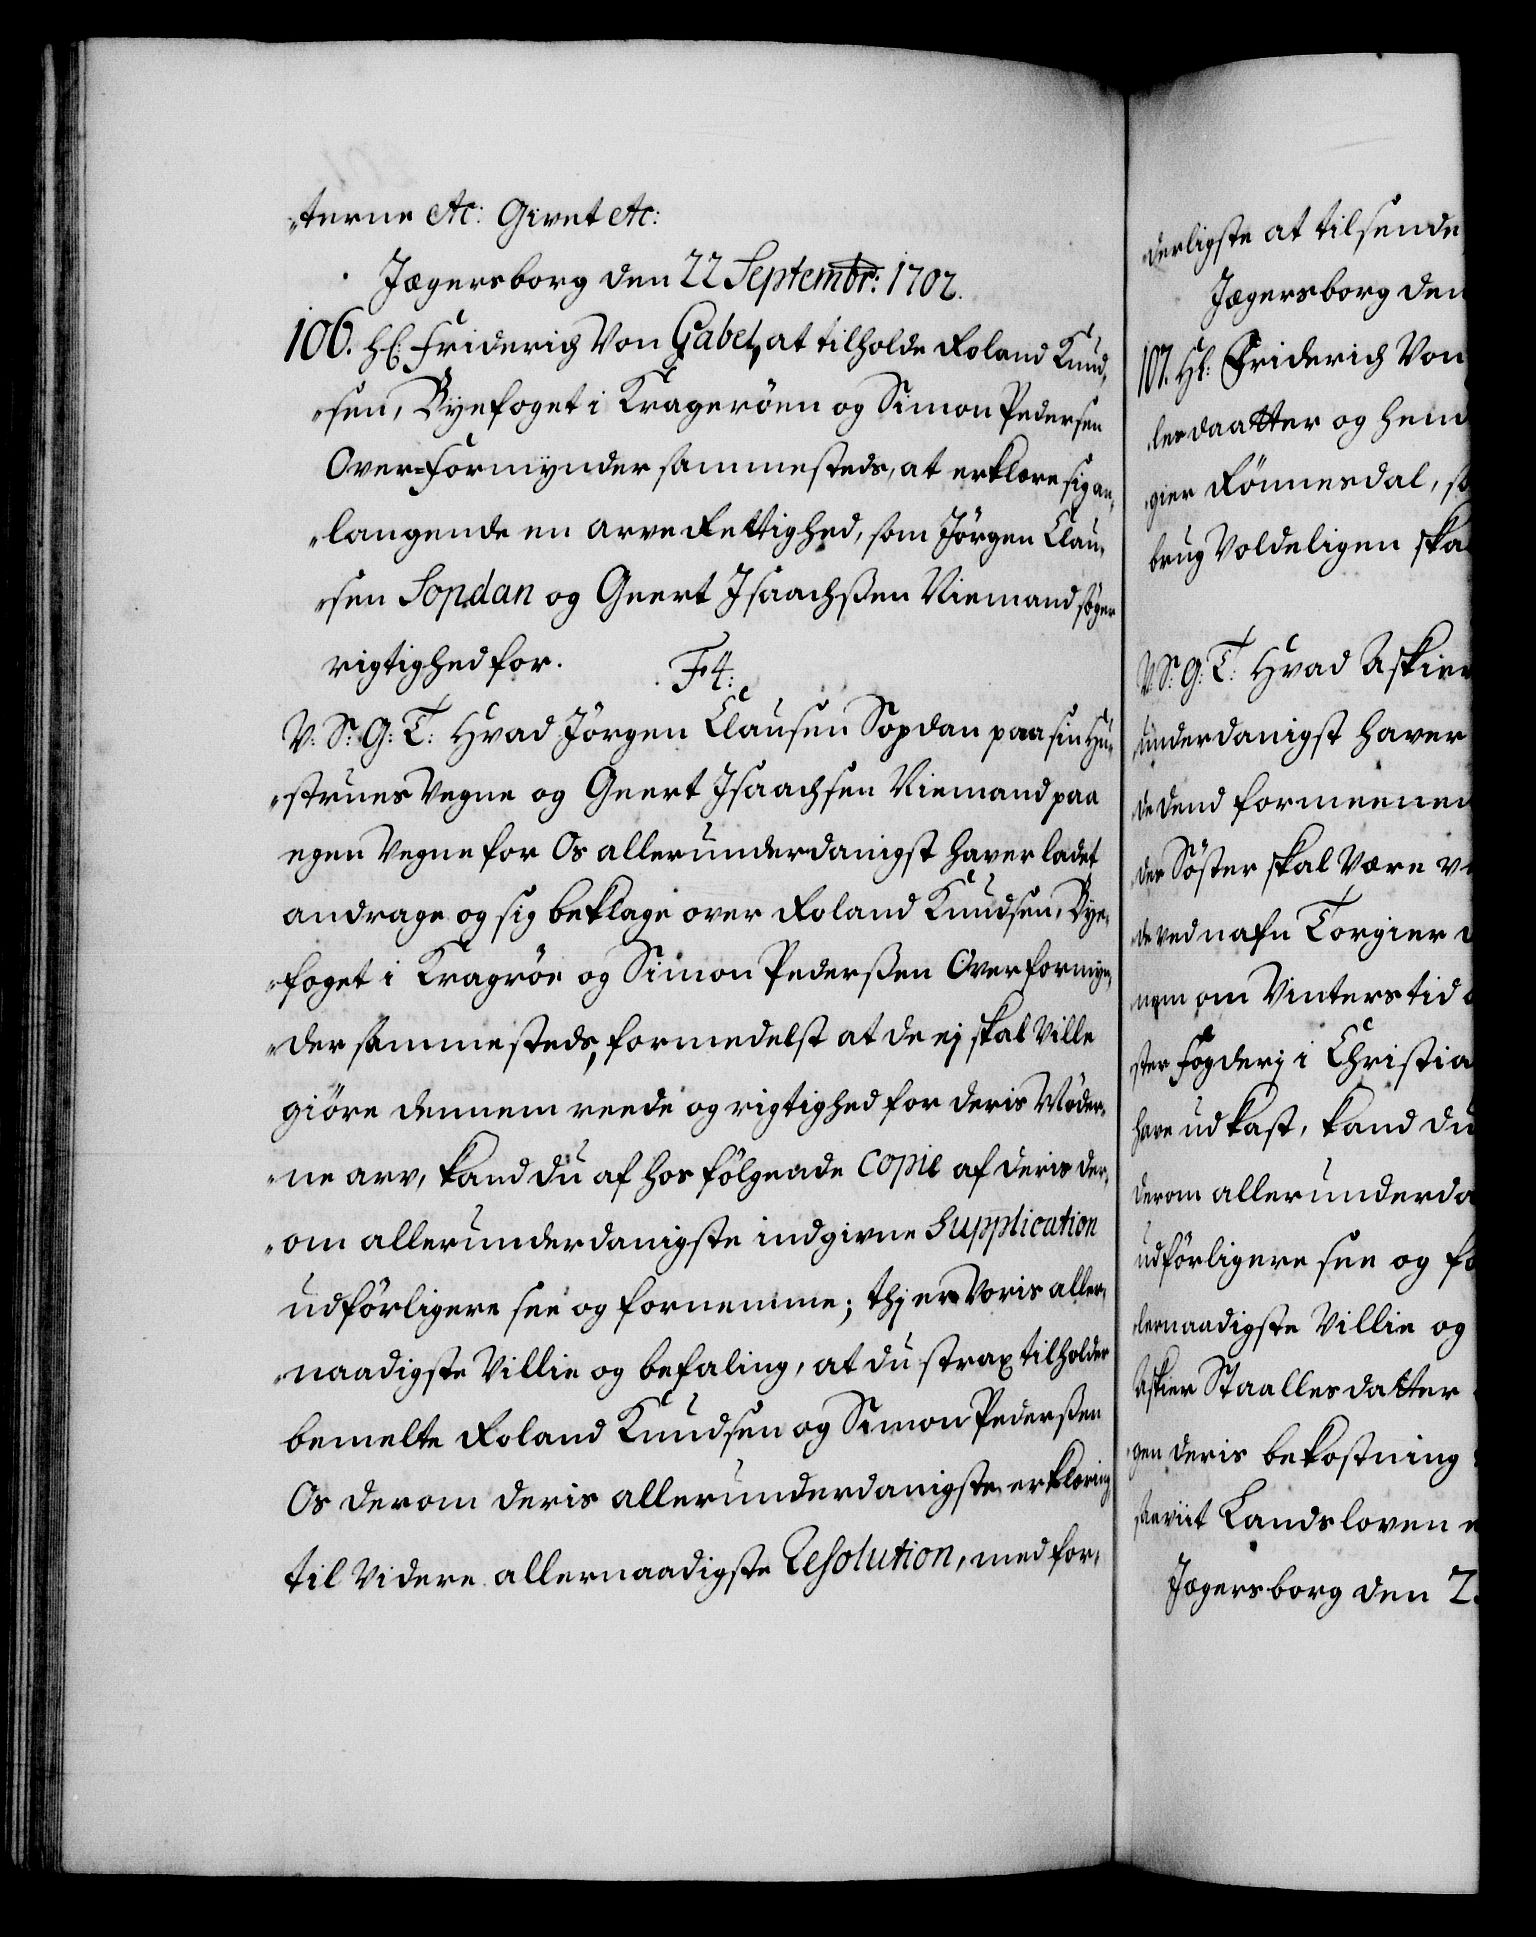 „terne etc: Givet etc:
Jægersborg den 22 Septembr: 1702.
106. Hl: Friderich Von Gabel, at tilholde Roland Knud„
„sen, Byefoget i Kragerøen og Simon Pedersen
Over=Formynder sammesteds, at erklære sig an„
„langende en arve Rettighed, som Jørgen Clau„
„sen Sopdan og Geert Isaachssen Niemand søger
rigtighed for. F4:
V: S: G: T: Hvad Jørgen Clausen Sopdan paa sin Hu„
„strues Vegne og Geert Isaachsen Niemand paa
egen Vegne for Os allerunderdanigst haver ladet
andrage og sig beklage over Roland Knudsen, Bye„
„foget i Kragrøe og Simon Pederssen Overformyn„
„der sammesteds, formedelst at de ej skal Ville
giøre dennem reede og rigtighed for deris Møder„
„ne arv, kand du af hosfølgende Copie af deris der„
„om allerunderdanigste indgivne Supplication
udførligere see og fornemme; thj er Voris aller„
„naadigste Villie og befaling, at du strax tilholder
bemelte Roland Knudsen og Simon Pederssen
Os derom deris allerunderdanigste erklæring
til Videre allernaadigste Resolution, med for„
„derligste at tilsende
Jægersborg den
107. Hl: Friderich Von
lesdaatter og hend
„gier Rønnesdal, so
brug Voldeligen ska
V: S: G: T: Hvad Askier
underdanigst haver
de dend formeenen
der Søster skal Være v
de ved nafn Torgier
nem om Vinterstid
ster Fogderj i Christia
have udkast, kand du
derom allerunderda
udførligere see og fo
lernaadigste Villie og
Askier Staallesdatter
gen deris bekostning
saaviit Landsloven
Jægersborg den 2